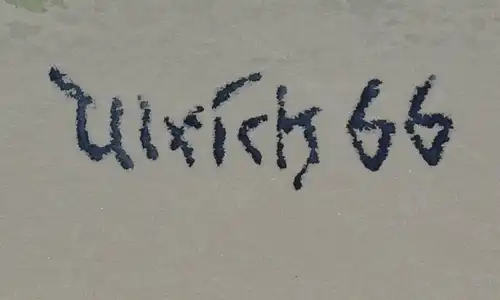 Ulrich 66